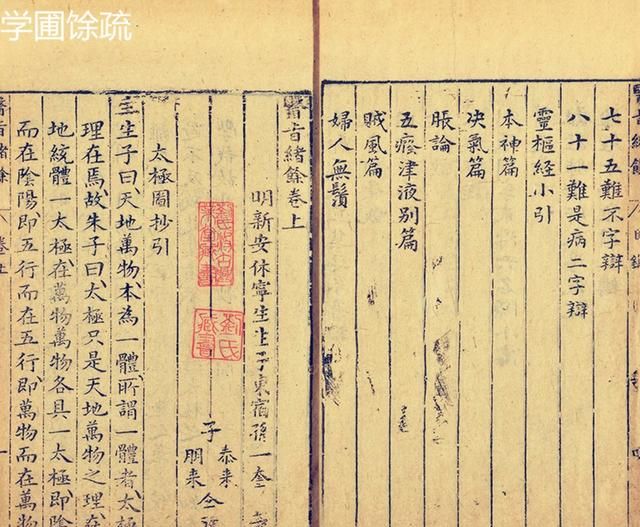 学圃馀疏
七十五難不字辯
八十一難是病二字辯
靈樞經小引
本神篇
决氣篇
脹論
五癃津液别篇
賊風篇
婦人無鬚
醫旨緒餘卷上
明新安休寧生生子東宿孫一奎
子 泰来
朋来 仝
太極圖抄引
生生子曰天地萬物本為一體所謂一體者太
理在焉故朱子曰太極只是天地萬物之理在
地統體一太極在萬物萬物各具一太極即陰
而在陰陽即五行而在五行即萬物而在萬
劉氏
藏書